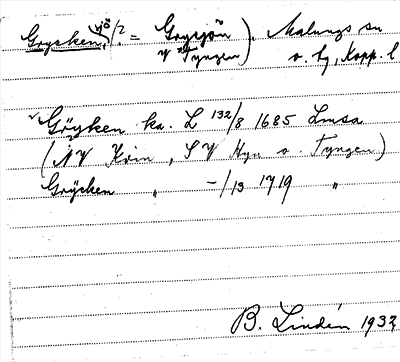 Grycken, sjö /? = Grycsjön
V Tyngen). Malungs sn
o. tg, Kopp. l
Göyken ka. L 132/8 1685 Lmsa
(NV Kvin, SV Hyn o. Tyngen)
Gröcken " -/13 1719 "
B. Lindén 1932